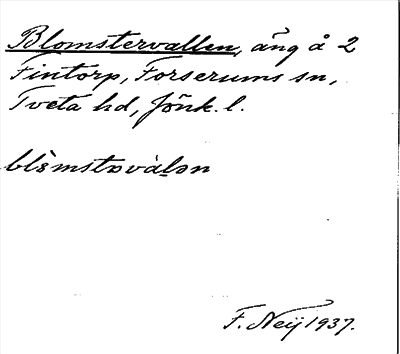 Blomstervallen, äng å 2
Fintorp, Forserums sn,
Tveta hd, Jönk. l.
blòmstəvàlən
F. Neij 1937.